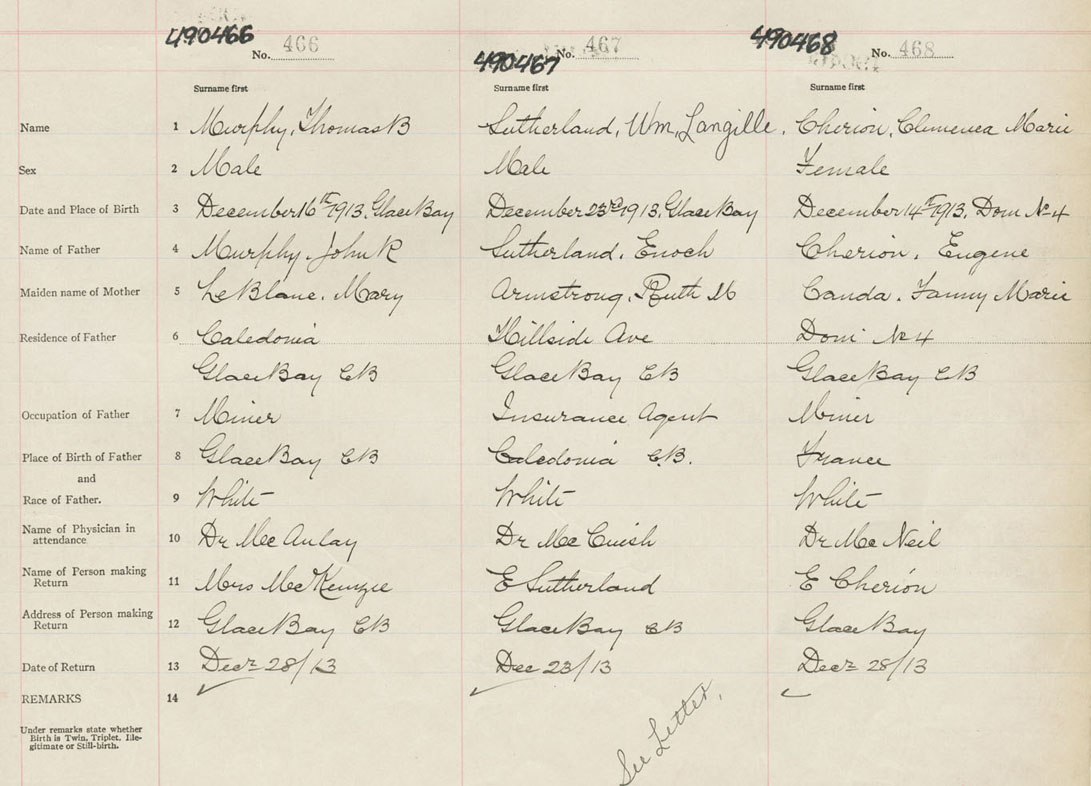 490466 No. 466 490467 No. 467 490468 No. 468
Surname first Surname first Surname first
Name 1 Murphy, Thomas B Sutherland, Wm, Langille. Cherion, Clemenea Marie
Sex 2 Male Male Female
Date and Place of Birth 3 December 16th 1913, Glace Bay December 23rd 1913, Glace Bay December 14th 1913, Dom No 4
Name of Father 4 Murphy, John R Sutherland, Enoch Cherion, Eugene
Maiden name of Mother 5 LeBlanc, Mary Armstrong, Ruth M Canda, Fanny Marie
Residence of Father 6 Caledonia Hillside Ave Dom No 4
Glace Bay CB Glace Bay CB Glace Bay CB
Occupation of Father 7 Miner Insurance Agent Miner
Place of Birth of Father 8 Glace Bay CB Caledonia C.B. France
and
Race of Father. 9 White White White
Name of Physician in
attendance 10 Dr MacAulay Dr McCuish Dr McNeil
Name of Person making
Return 11 Mrs McKenzie E Sutherland E Cherion
Address of Person making
Return 12 Glace Bay CB Glace Bay CB Glace Bay
Date of Return 13 Decr 28/13 Dec 23/13 Decr 28/13
REMARKS 14
See Letter.
Under remarks state whether
Birth is Twin, Triplet, Ille-
gitimate or Still-birth.